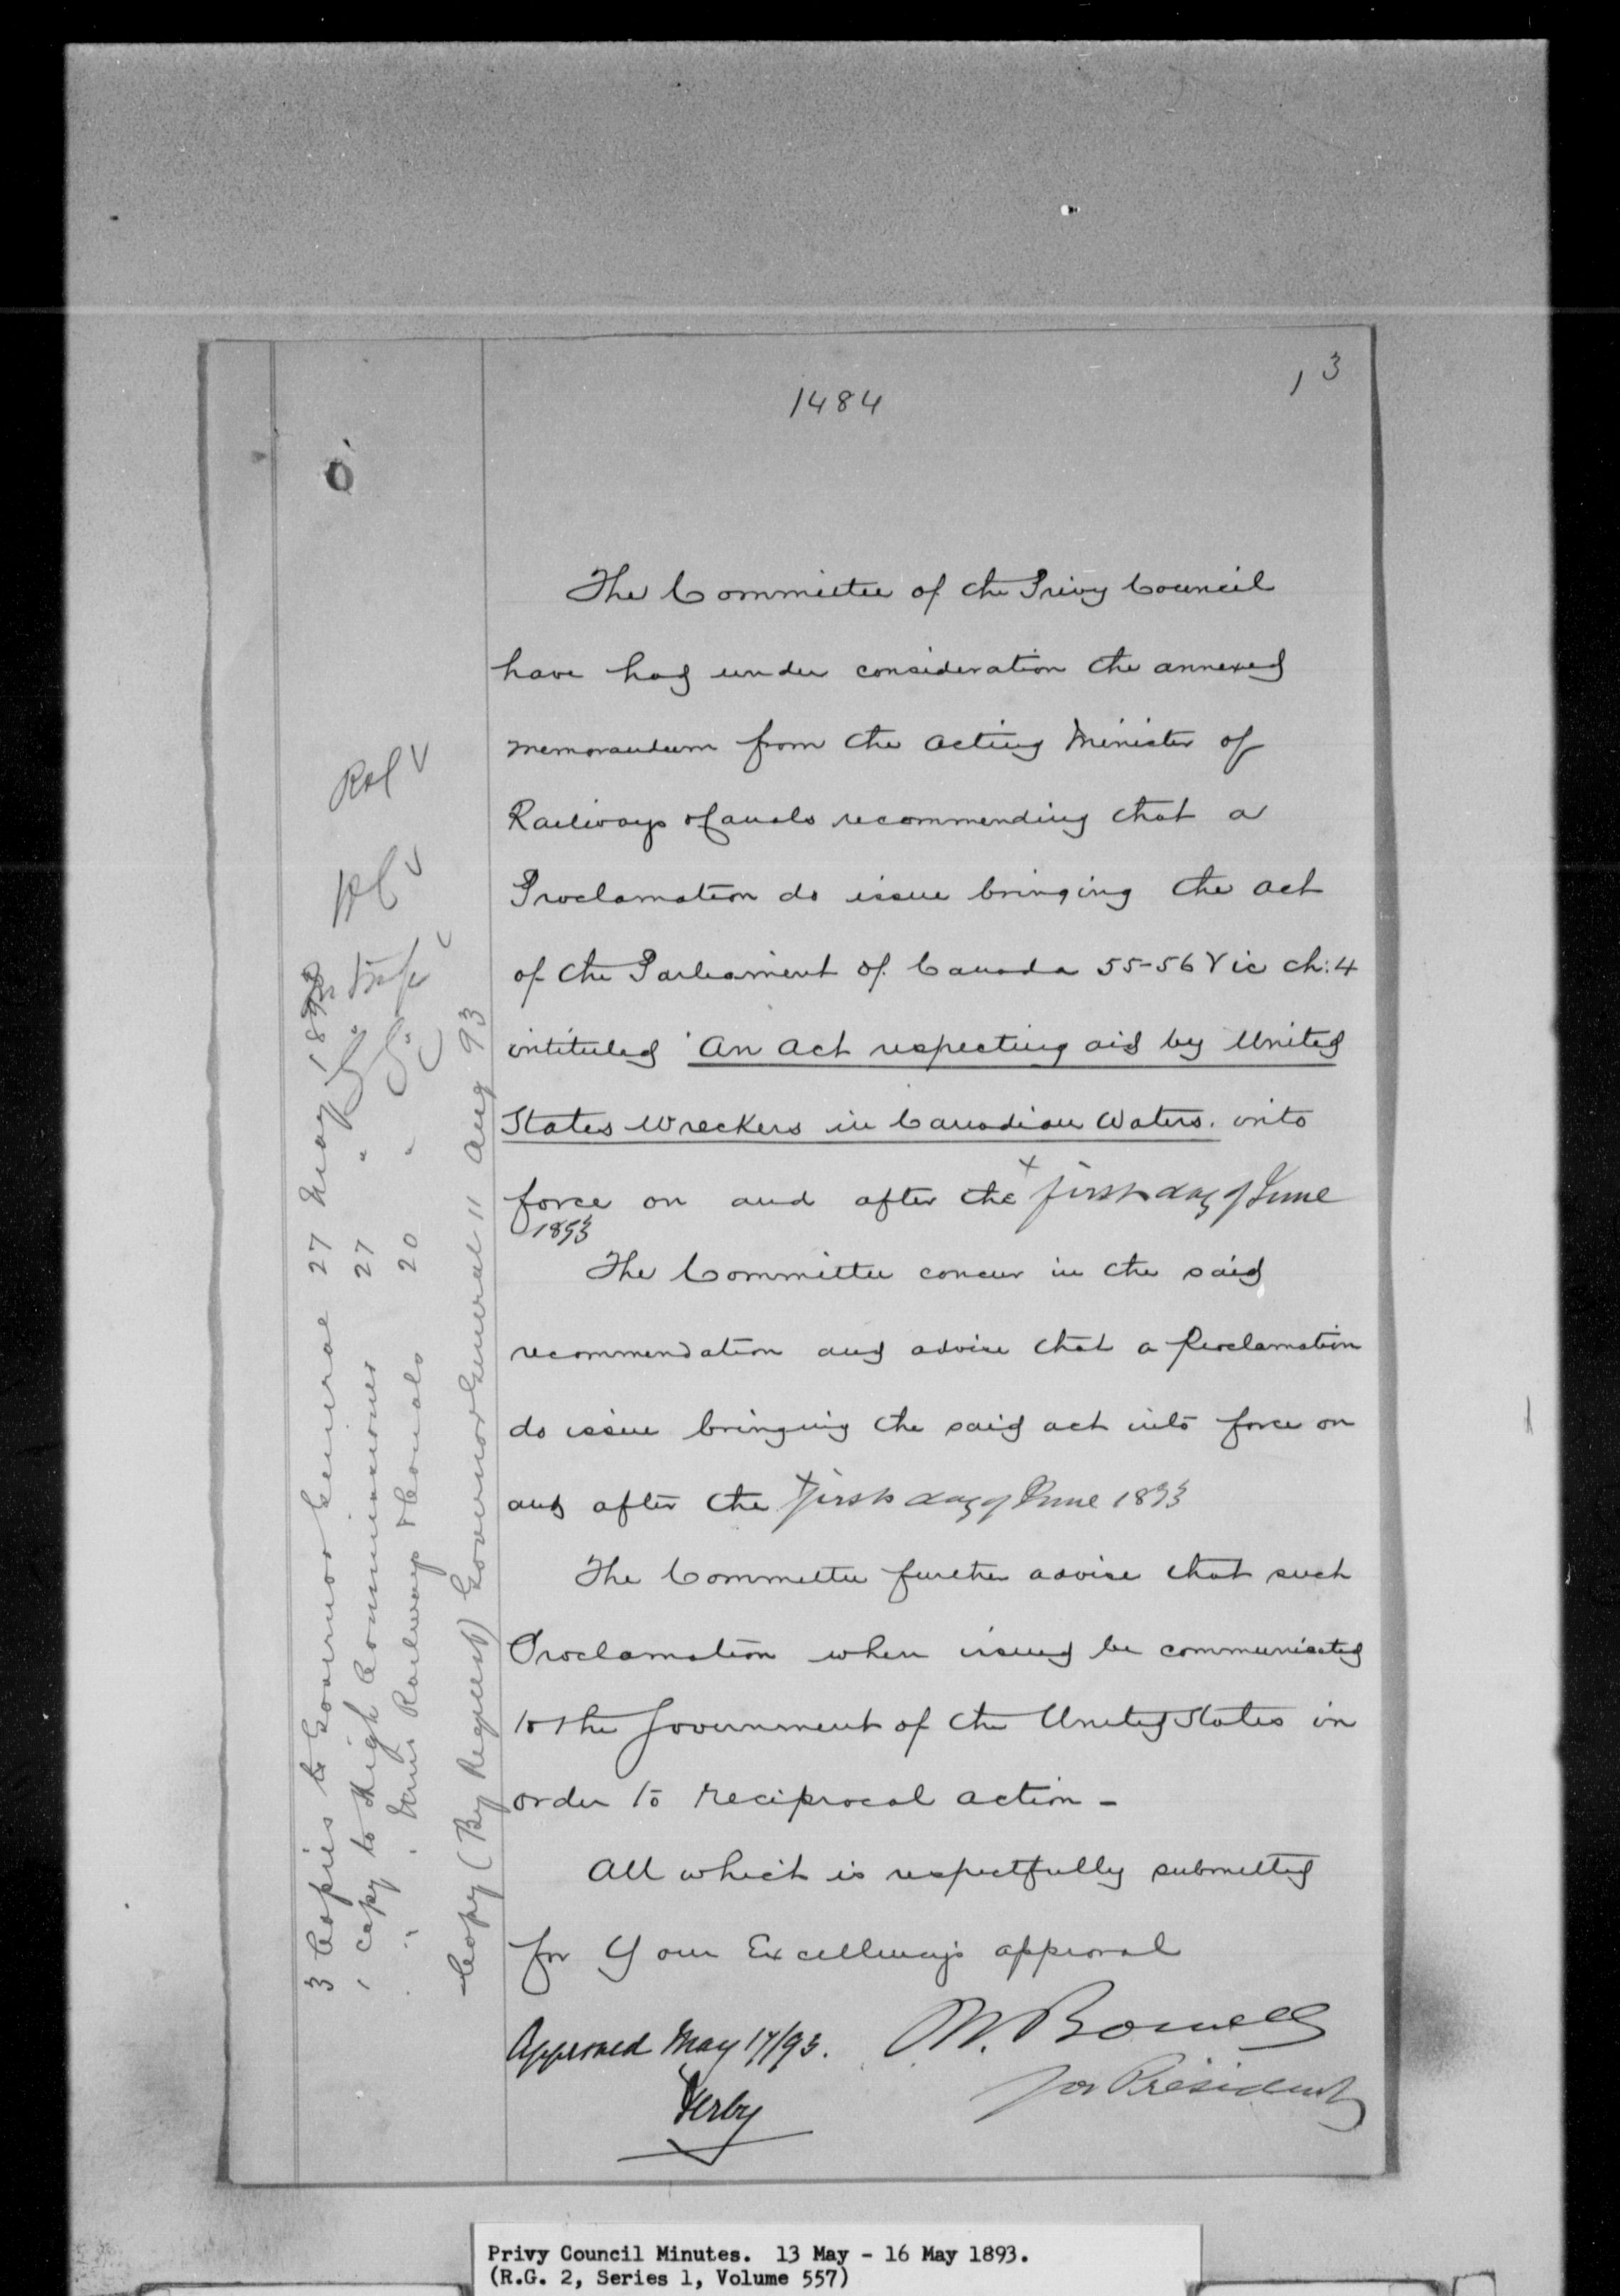 1484
13
The Committee of the Privy Council
have had under consideration the annexed
memorandum from the acting Minister of
Railways & Canals recommending that a
Proclamation do issue bringing the act
of the Parliament of Canada 55-56 Vic ch: 4
intituled "An Act respecting aid by United
States Wreckers in Canadian Waters. into
force on and after the x first day of June
1893
The Committee concur in the said
recommendation and advise that a Proclamation
do issue bringing the said act into force on
and after the x first day of June 1893
The Committee further advise that such
Proclamation when issued be communicated
to the Government of the United States in
order to reciprocal action -
All which is respectfully submitted
for Your Excellency's approval
M. Bowell
for President
Approved May 17/93.
Derby
3 Copies to Governor General 27 May 1893
1 copy to High Commissioner 27 "
" " Railways & Canals 20 "
Copy (By Request) Governor General 11 Aug 93
Privy Council Minutes. 13 May - 16 May 1893.
(R.G. 2, Series 1, Volume 557)